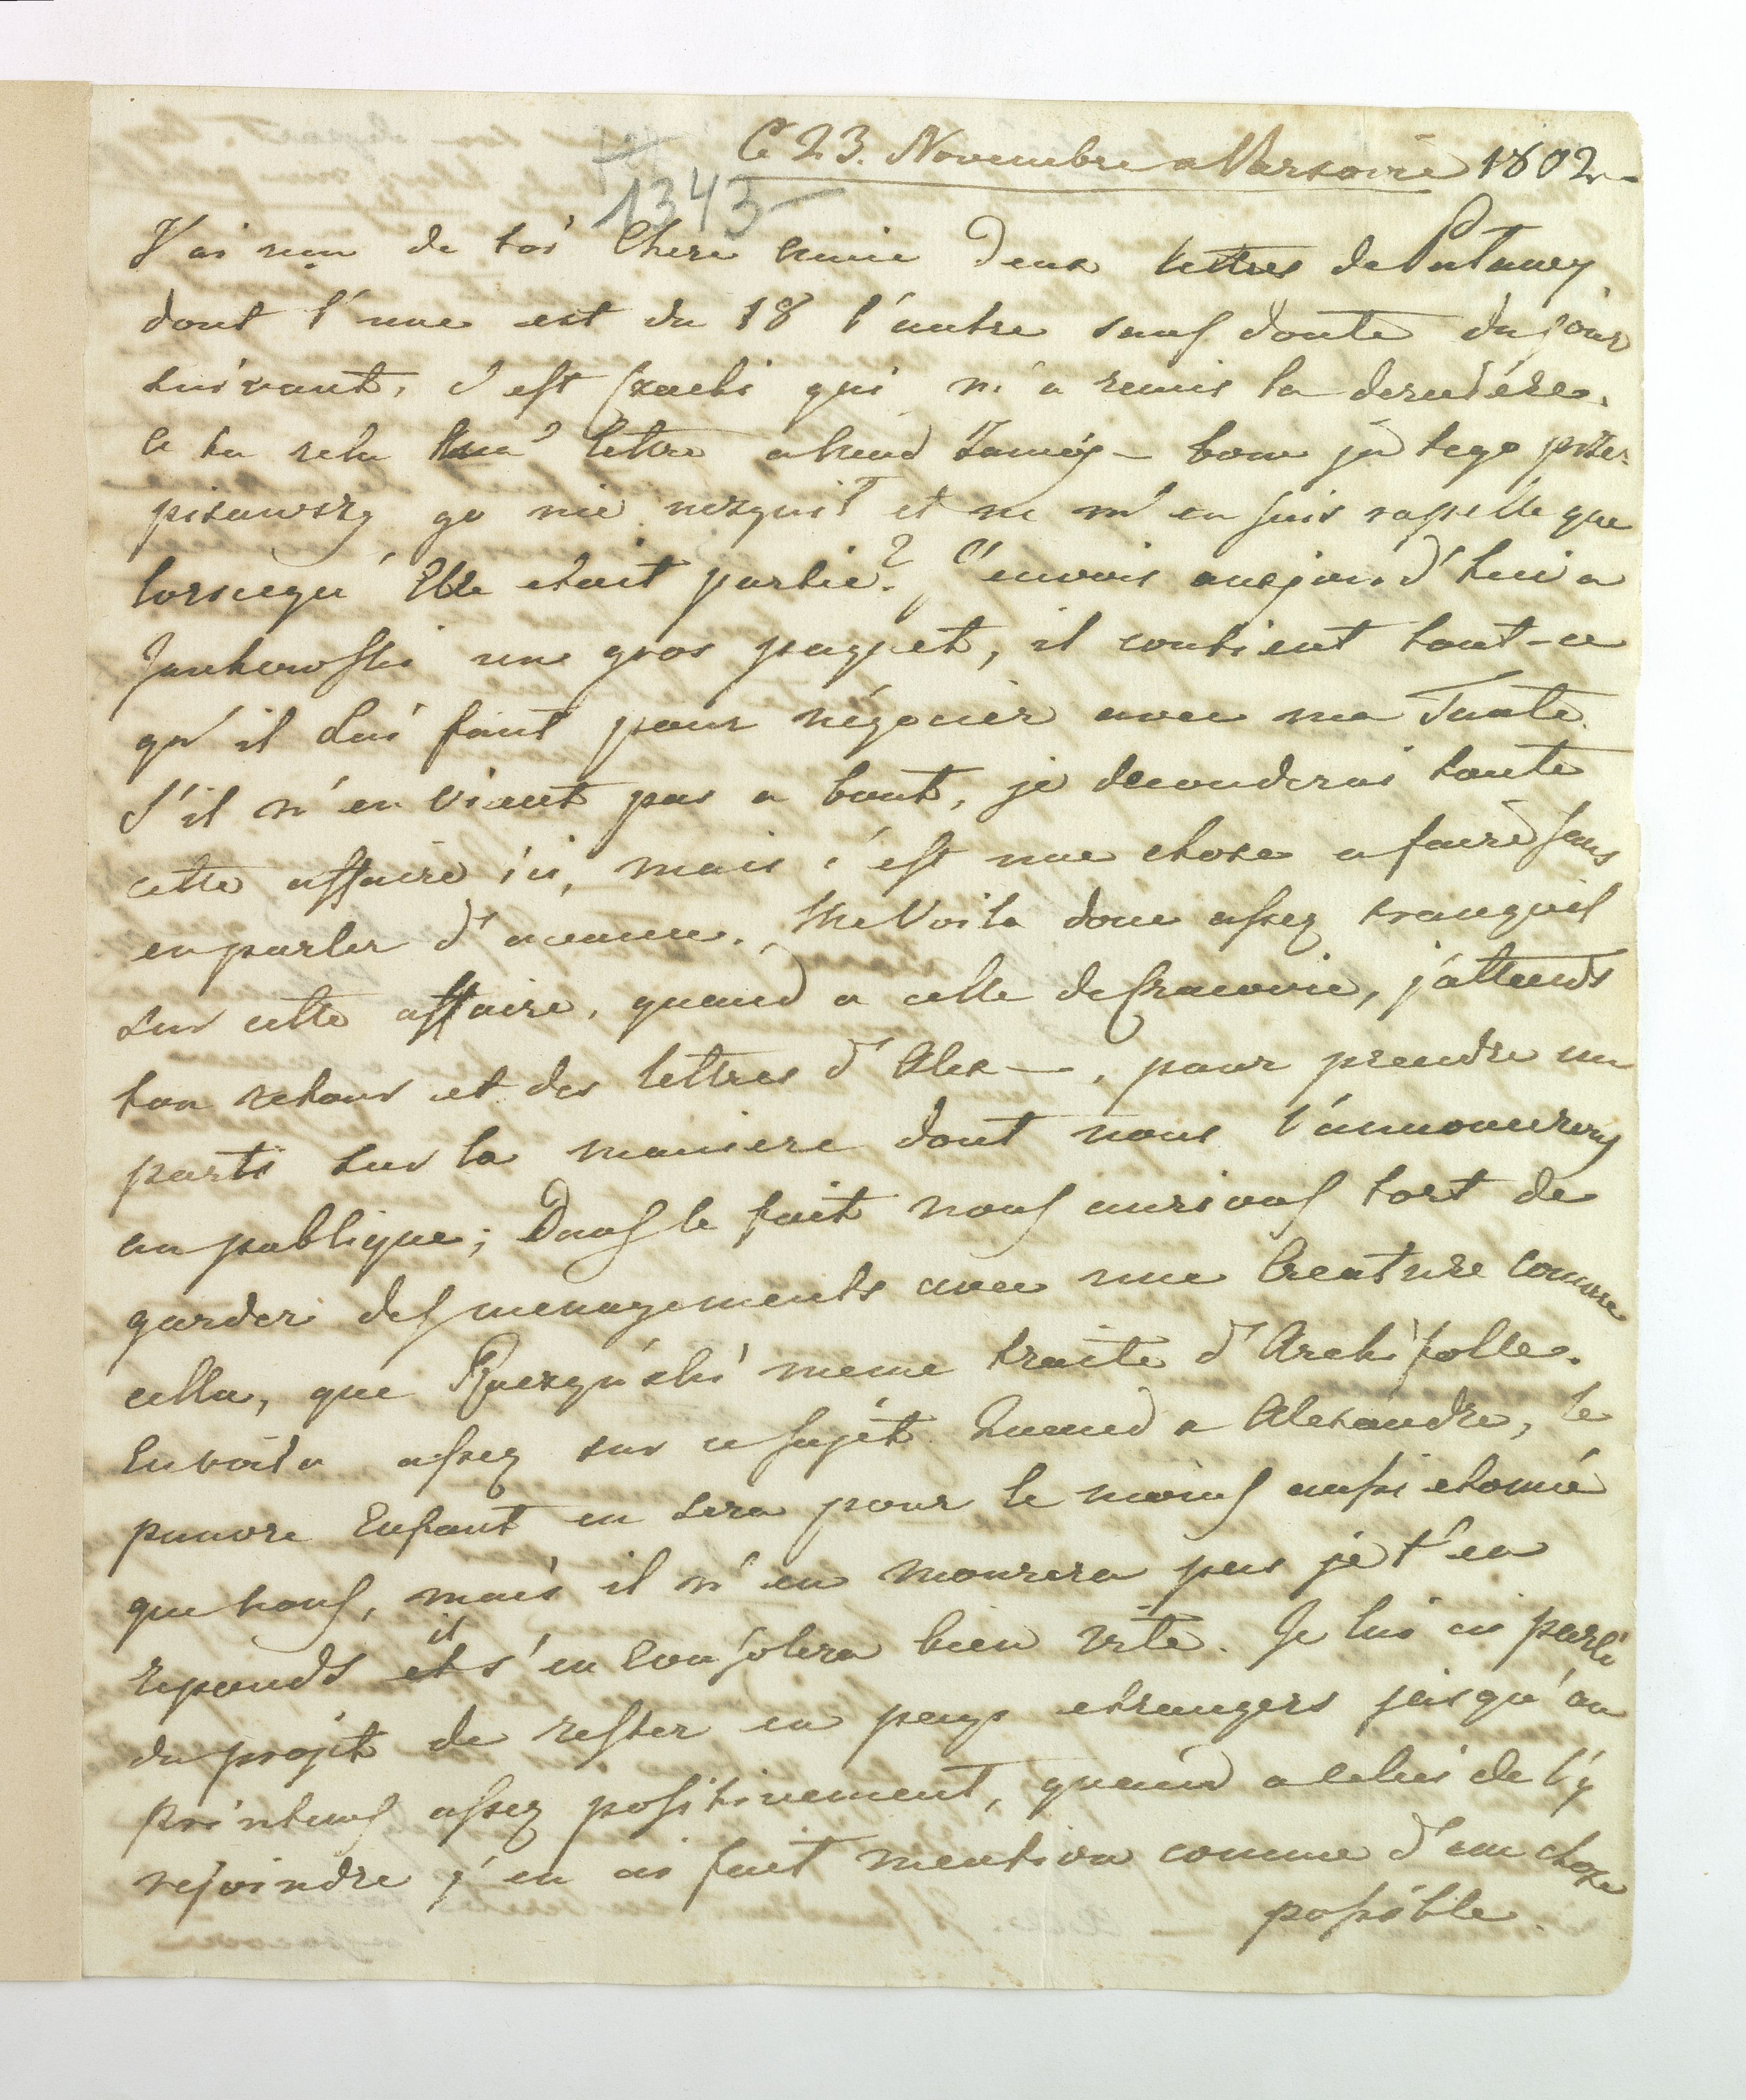 Ce 23. Novembre a Varsovie 1802
1343
J'ai reçu de toi Chere Amie deux lettres de Pulawy
dont l'une est du 18 l'autre sans doute du jour
suivant, c'est qui m'a remis la derniére.
lettre bom ja tego prze-
pisawszy go nie et ne m'en suis rapellé que
lorsequ'Elle etait partie? J'envois aujourd'hui a
Jankowski un gros paquet, il contient tout-ce
qu'il lui faut pour négocier avec ma Tante.
S'il n'en vient pas a bout, je toute
cette affaire ici, mais c'est une chose a faire sans
en parler d'avance. Me Voila donc assez tranquil
sur cette affaire, quand a celle de Cracovie, j'attends
ton retour et des lettres d'Alex—, pour prendre un
parti sur la maniere dont nous l'annoncerons
au publique; Dans le fait nous aurions tort de
garder des menagements avec une Creature comme
cella, que meme traite d'Archifolle.
En voila assez sur ce sujet. Quand a Alexandre, le
pauvre Enfant en sera pour le moins aussi etonné
que nous, mais il n'en mourera pas je t'en
reponds et il s'en Consolera bien vite. Je lui ai parlé
du projet de rester en pays etrangers jusqu'au
printems assez positivement, quand a celui de l'y
rejoindre j'en ai fait mention comme d'une chose
possible.